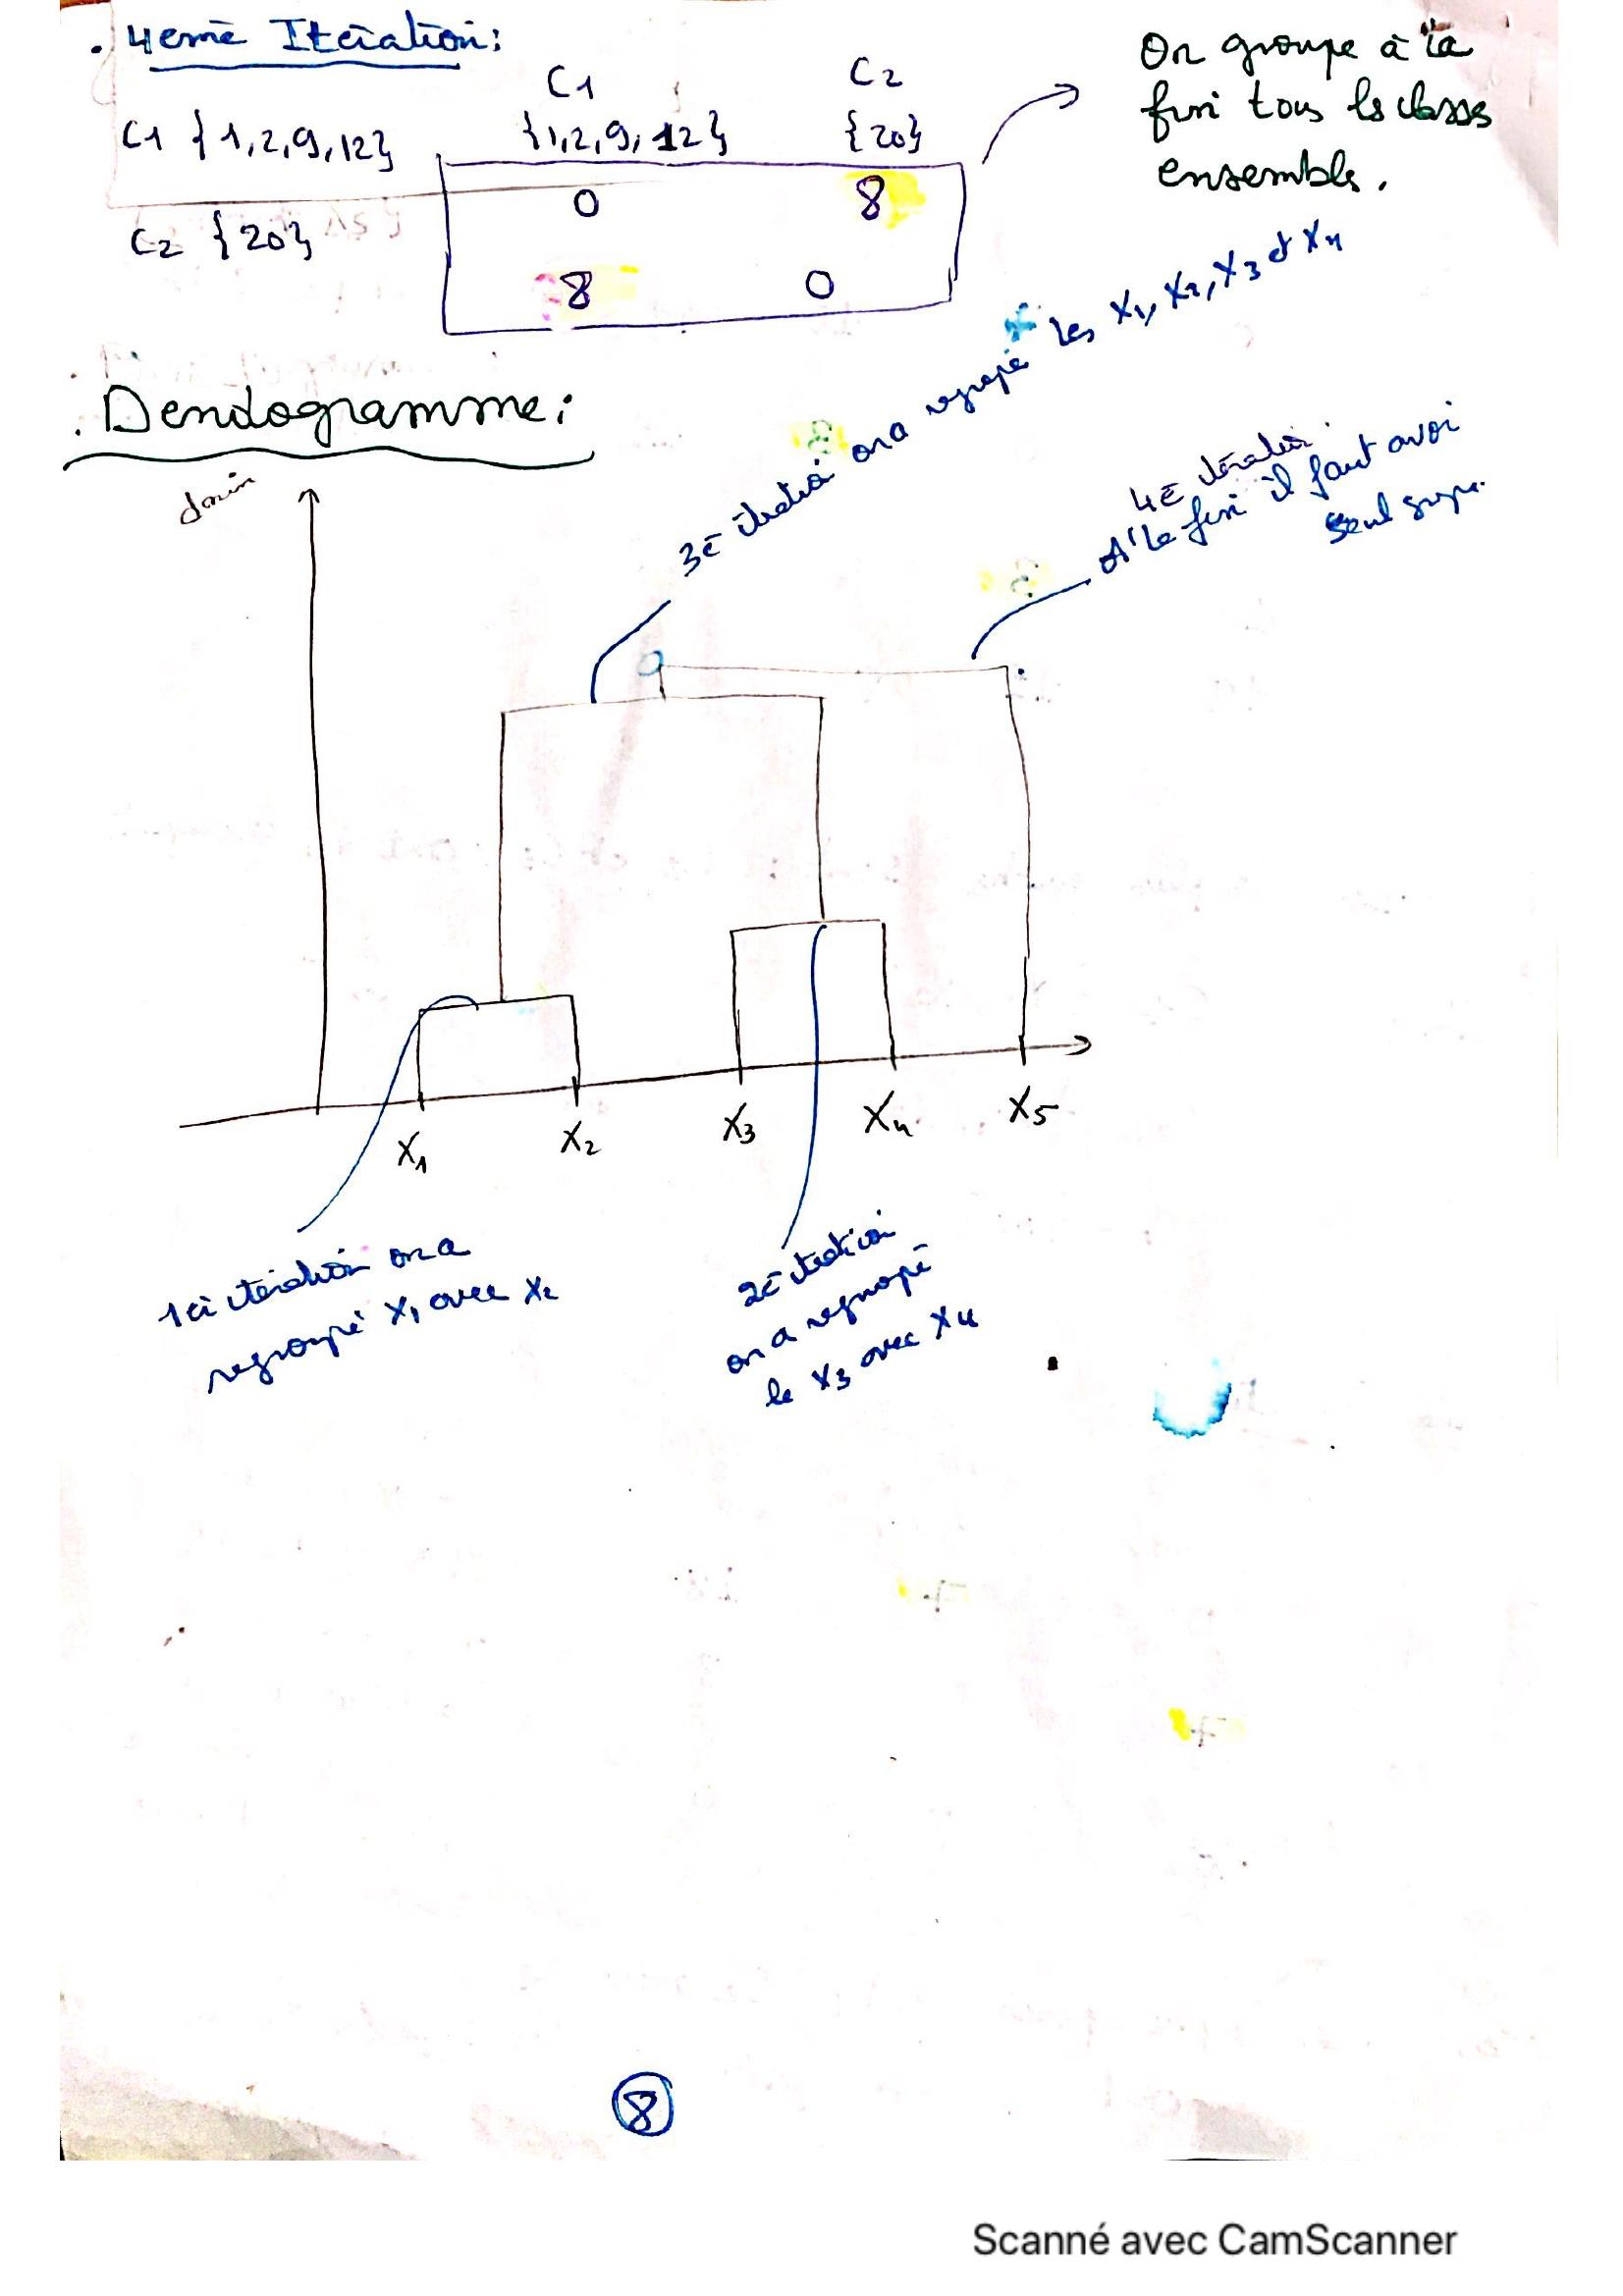 . 4emē Itération:
C1 C2
{1,2,9,12} {20}
C1 {1,2,9,12} 0 8
C2 {20} 8 0
On groupe à la
fin tous ls classes
ensembls.
. Dendogramme:
dmin
3ē itération on a regroupé les X1, X2, X3 et X4
4ē itération
A la fin il faut avoir
seul groupe.
X1 X2 X3 X4 X5
1èr itération on a
regroupé X1 avec X2
2ē itération
on a regroupé
le X3 avec X4
8
Scanné avec CamScanner